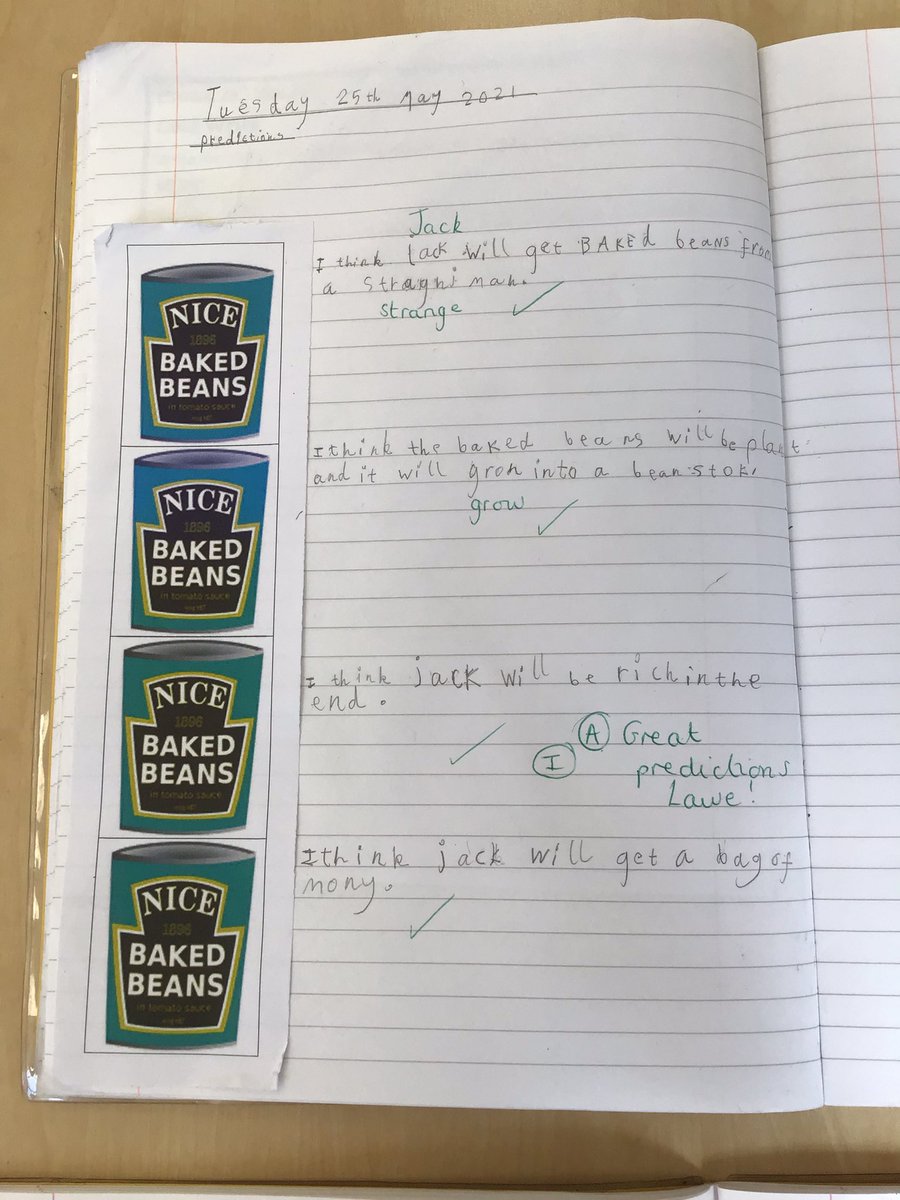 Tuesday 25th May 2021
predictions
Jack
I think Jack will get BAKEd beans from
a straghi man.
strange
NICE
1896
BAKED
BEANS
in tomato sauce
I think the baked beans will be plant
and it will groh into a bean stok.
grow
NICE
1896
BAKED
BEANS
in tomato sauce
I think jack will be rich in the
end.
A Great
I predictions
Lawe!
NICE
1896
BAKED
BEANS
in tomato sauce
I think jack will get a bag of
mony.
NICE
1896
BAKED
BEANS
in tomato sauce